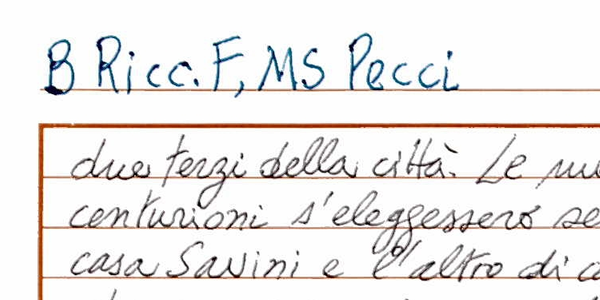 B Ricc. F, MS Pecci
due terzi della città. Le
centurioni s'eleggessero
casa Savini e l'altro di